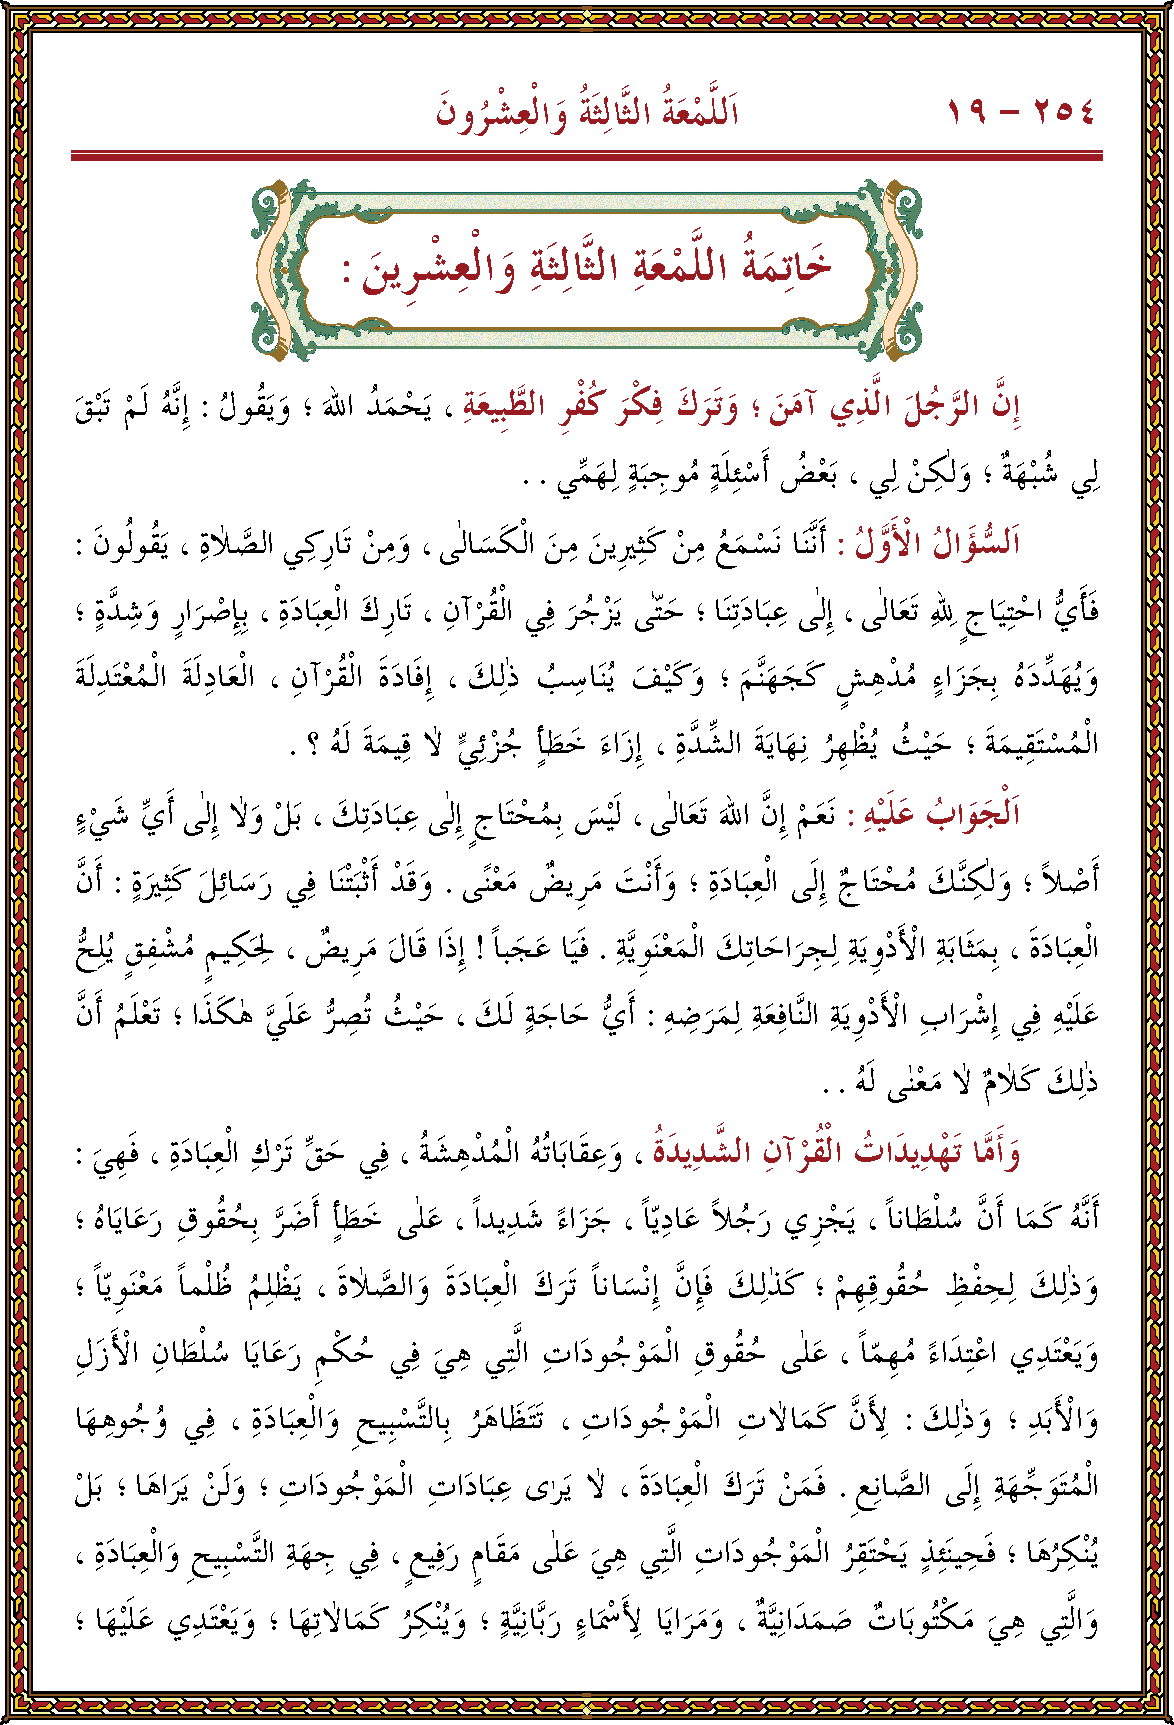 ٢٥٤ – ١٩
اَللَّمْعَةُ الثَّالِثَةُ وَالْعِشْرُونَ
خَاتِمَةُ اللَّمْعَةِ الثَّالِثَةِ وَالْعِشْرِينَ :
إِنَّ الرَّجُلَ الَّذِي آمَنَ ؛ وَتَرَكَ فِكْرَ كُفْرِ الطَّبِيعَةِ ، يَحْمَدُ اللهَ ؛ وَيَقُولُ : إِنَّهُ لَمْ تَبْقَ
لِي شُبْهَةٌ ؛ وَلٰكِنْ لِي ، بَعْضُ أَسْئِلَةٍ مُوجِبَةٍ لِهَمِّي . .
اَلسُّؤَالُ الْأَوَّلُ : أَنَّنَا نَسْمَعُ مِنْ كَثِيرِينَ مِنَ الْكَسَالٰى ، وَمِنْ تَارِكِي الصَّلاٰةِ ، يَقُولُونَ :
فَأَيُّ احْتِيَاجٍ لِلّٰهِ تَعَالٰى ، إِلٰى عِبَادَتِنَا ؛ حَتّٰى يَزْجُرَ فِي الْقُرْآنِ ، تَارِكَ الْعِبَادَةِ ، بِإِصْرَارٍ وَشِدَّةٍ ؛
وَيُهَدِّدَهُ بِجَزَاءٍ مُدْهِشٍ كَجَهَنَّمَ ؛ وَكَيْفَ يُنَاسِبُ ذٰلِكَ ، إِفَادَةَ الْقُرْآنِ ، الْعَادِلَةَ الْمُعْتَدِلَةَ
الْمُسْتَقِيمَةَ ؛ حَيْثُ يُظْهِرُ نِهَايَةَ الشِّدَّةِ ، إِزَاءَ خَطَأٍ جُزْئِيٍّ لاٰ قِيمَةَ لَهُ ؟ .
اَلْجَوَابُ عَلَيْهِ : نَعَمْ إِنَّ اللهَ تَعَالٰى ، لَيْسَ بِمُحْتَاجٍ إِلٰى عِبَادَتِكَ ، بَلْ وَلاٰ إِلٰى أَيِّ شَيْءٍ
أَصْلاً ؛ وَلٰكِنَّكَ مُحْتَاجٌ إِلَى الْعِبَادَةِ ؛ وَأَنْتَ مَرِيضٌ مَعْنًى . وَقَدْ أَثْبَتْنَا فِي رَسَائِلَ كَثِيرَةٍ : أَنَّ
الْعِبَادَةَ ، بِمَثَابَةِ الْأَدْوِيَةِ لِجِرَاحَاتِكَ الْمَعْنَوِيَّةِ . فَيَا عَجَباً ! إِذَا قَالَ مَرِيضٌ ، لِحَكِيمٍ مُشْفِقٍ يُلِحُّ
عَلَيْهِ فِي إِشْرَابِ الْأَدْوِيَةِ النَّافِعَةِ لِمَرَضِهِ : أَيُّ حَاجَةٍ لَكَ ، حَيْثُ تُصِرُّ عَلَيَّ هٰكَذَا ؛ تَعْلَمُ أَنَّ
ذٰلِكَ كَلاٰمٌ لاٰ مَعْنٰى لَهُ . .
وَأَمَّا تَهْدِيدَاتُ الْقُرْآنِ الشَّدِيدَةُ ، وَعِقَابَاتُهُ الْمُدْهِشَةُ ، فِي حَقِّ تَرْكِ الْعِبَادَةِ ، فَهِيَ :
أَنَّهُ كَمَا أَنَّ سُلْطَاناً ، يَجْزِي رَجُلاً عَادِيّاً ، جَزَاءً شَدِيداً ، عَلٰى خَطَأٍ أَضَرَّ بِحُقُوقِ رَعَايَاهُ ؛
وَذٰلِكَ لِحِفْظِ حُقُوقِهِمْ ؛ كَذٰلِكَ فَإِنَّ إِنْسَاناً تَرَكَ الْعِبَادَةَ وَالصَّلاٰةَ ، يَظْلِمُ ظُلْماً مَعْنَوِيّاً ؛
وَيَعْتَدِي اعْتِدَاءً مُهِمّاً ، عَلٰى حُقُوقِ الْمَوْجُودَاتِ الَّتِي هِيَ فِي حُكْمِ رَعَايَا سُلْطَانِ الْأَزَلِ
وَالْأَبَدِ ؛ وَذٰلِكَ : لِأَنَّ كَمَالاٰتِ الْمَوْجُودَاتِ ، تَتَظَاهَرُ بِالتَّسْبِيحِ وَالْعِبَادَةِ ، فِي وُجُوهِهَا
الْمُتَوَجِّهَةِ إِلَى الصَّانِعِ . فَمَنْ تَرَكَ الْعِبَادَةَ ، لاٰ يَرٰى عِبَادَاتِ الْمَوْجُودَاتِ ؛ وَلَنْ يَرَاهَا ؛ بَلْ
يُنْكِرُهَا ؛ فَحِينَئِذٍ يَحْتَقِرُ الْمَوْجُودَاتِ الَّتِي هِيَ عَلٰى مَقَامٍ رَفِيعٍ ، فِي جِهَةِ التَّسْبِيحِ وَالْعِبَادَةِ ،
وَالَّتِي هِيَ مَكْتُوبَاتٌ صَمَدَانِيَّةٌ ، وَمَرَايَا لِأَسْمَاءٍ رَبَّانِيَّةٍ ؛ وَيُنْكِرُ كَمَالاٰتِهَا ؛ وَيَعْتَدِي عَلَيْهَا ؛